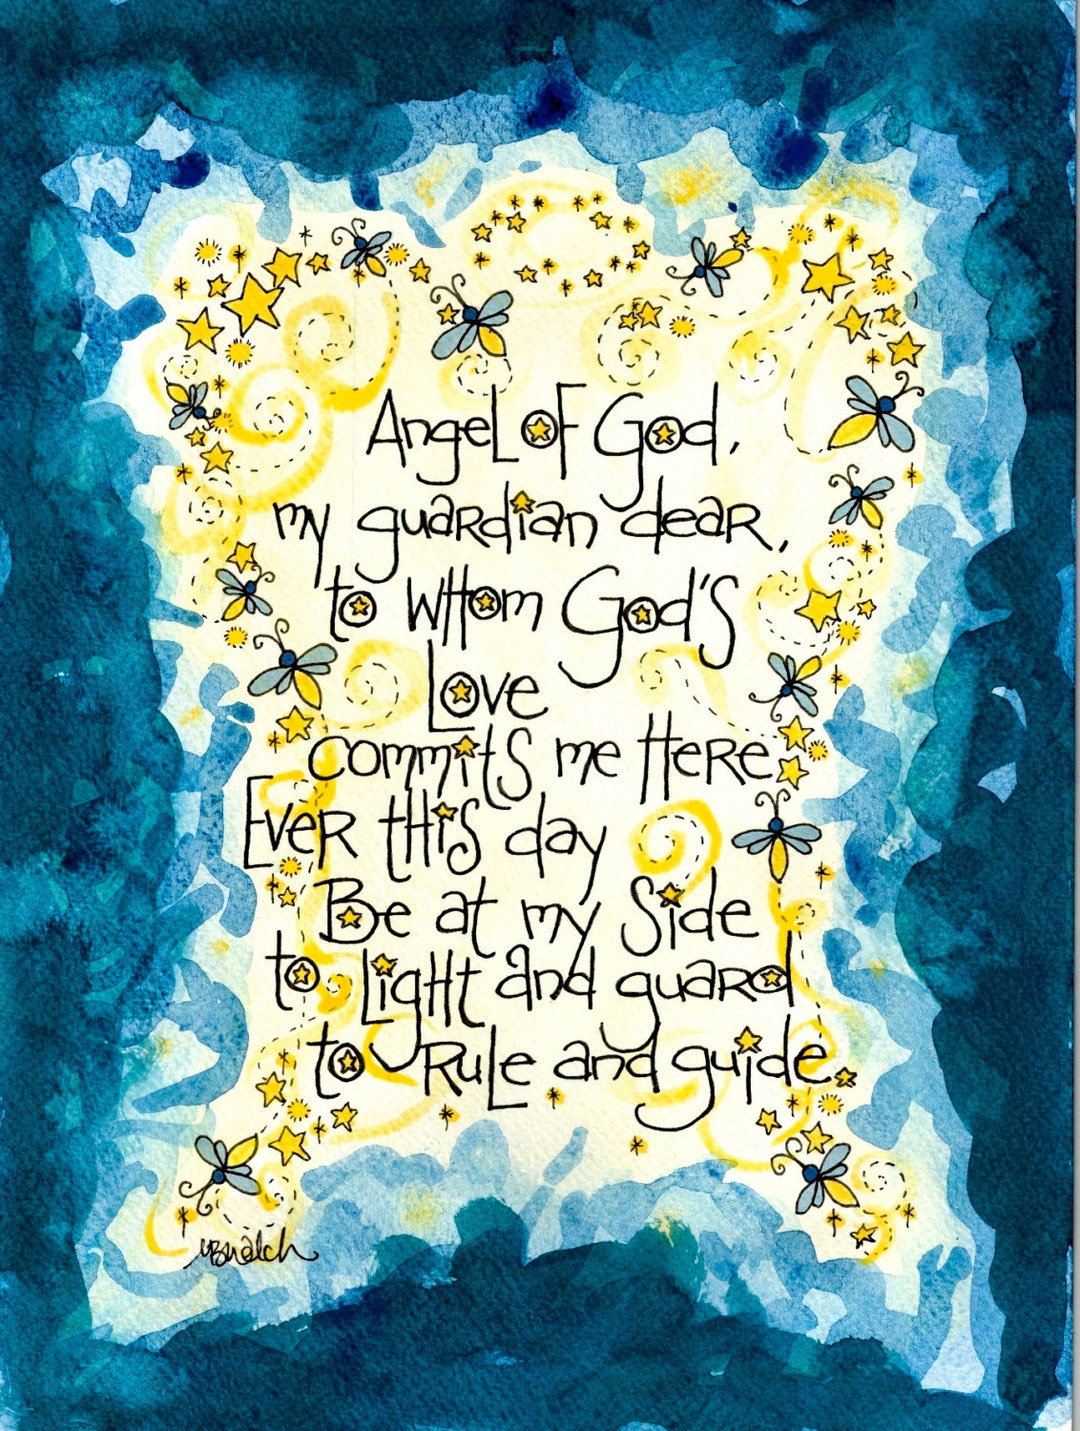 Angel of God,
my guardian dear,
to whom God's
Love
commits me Here
Ever this day
Be at my Side
to Light and guard
to Rule and guide